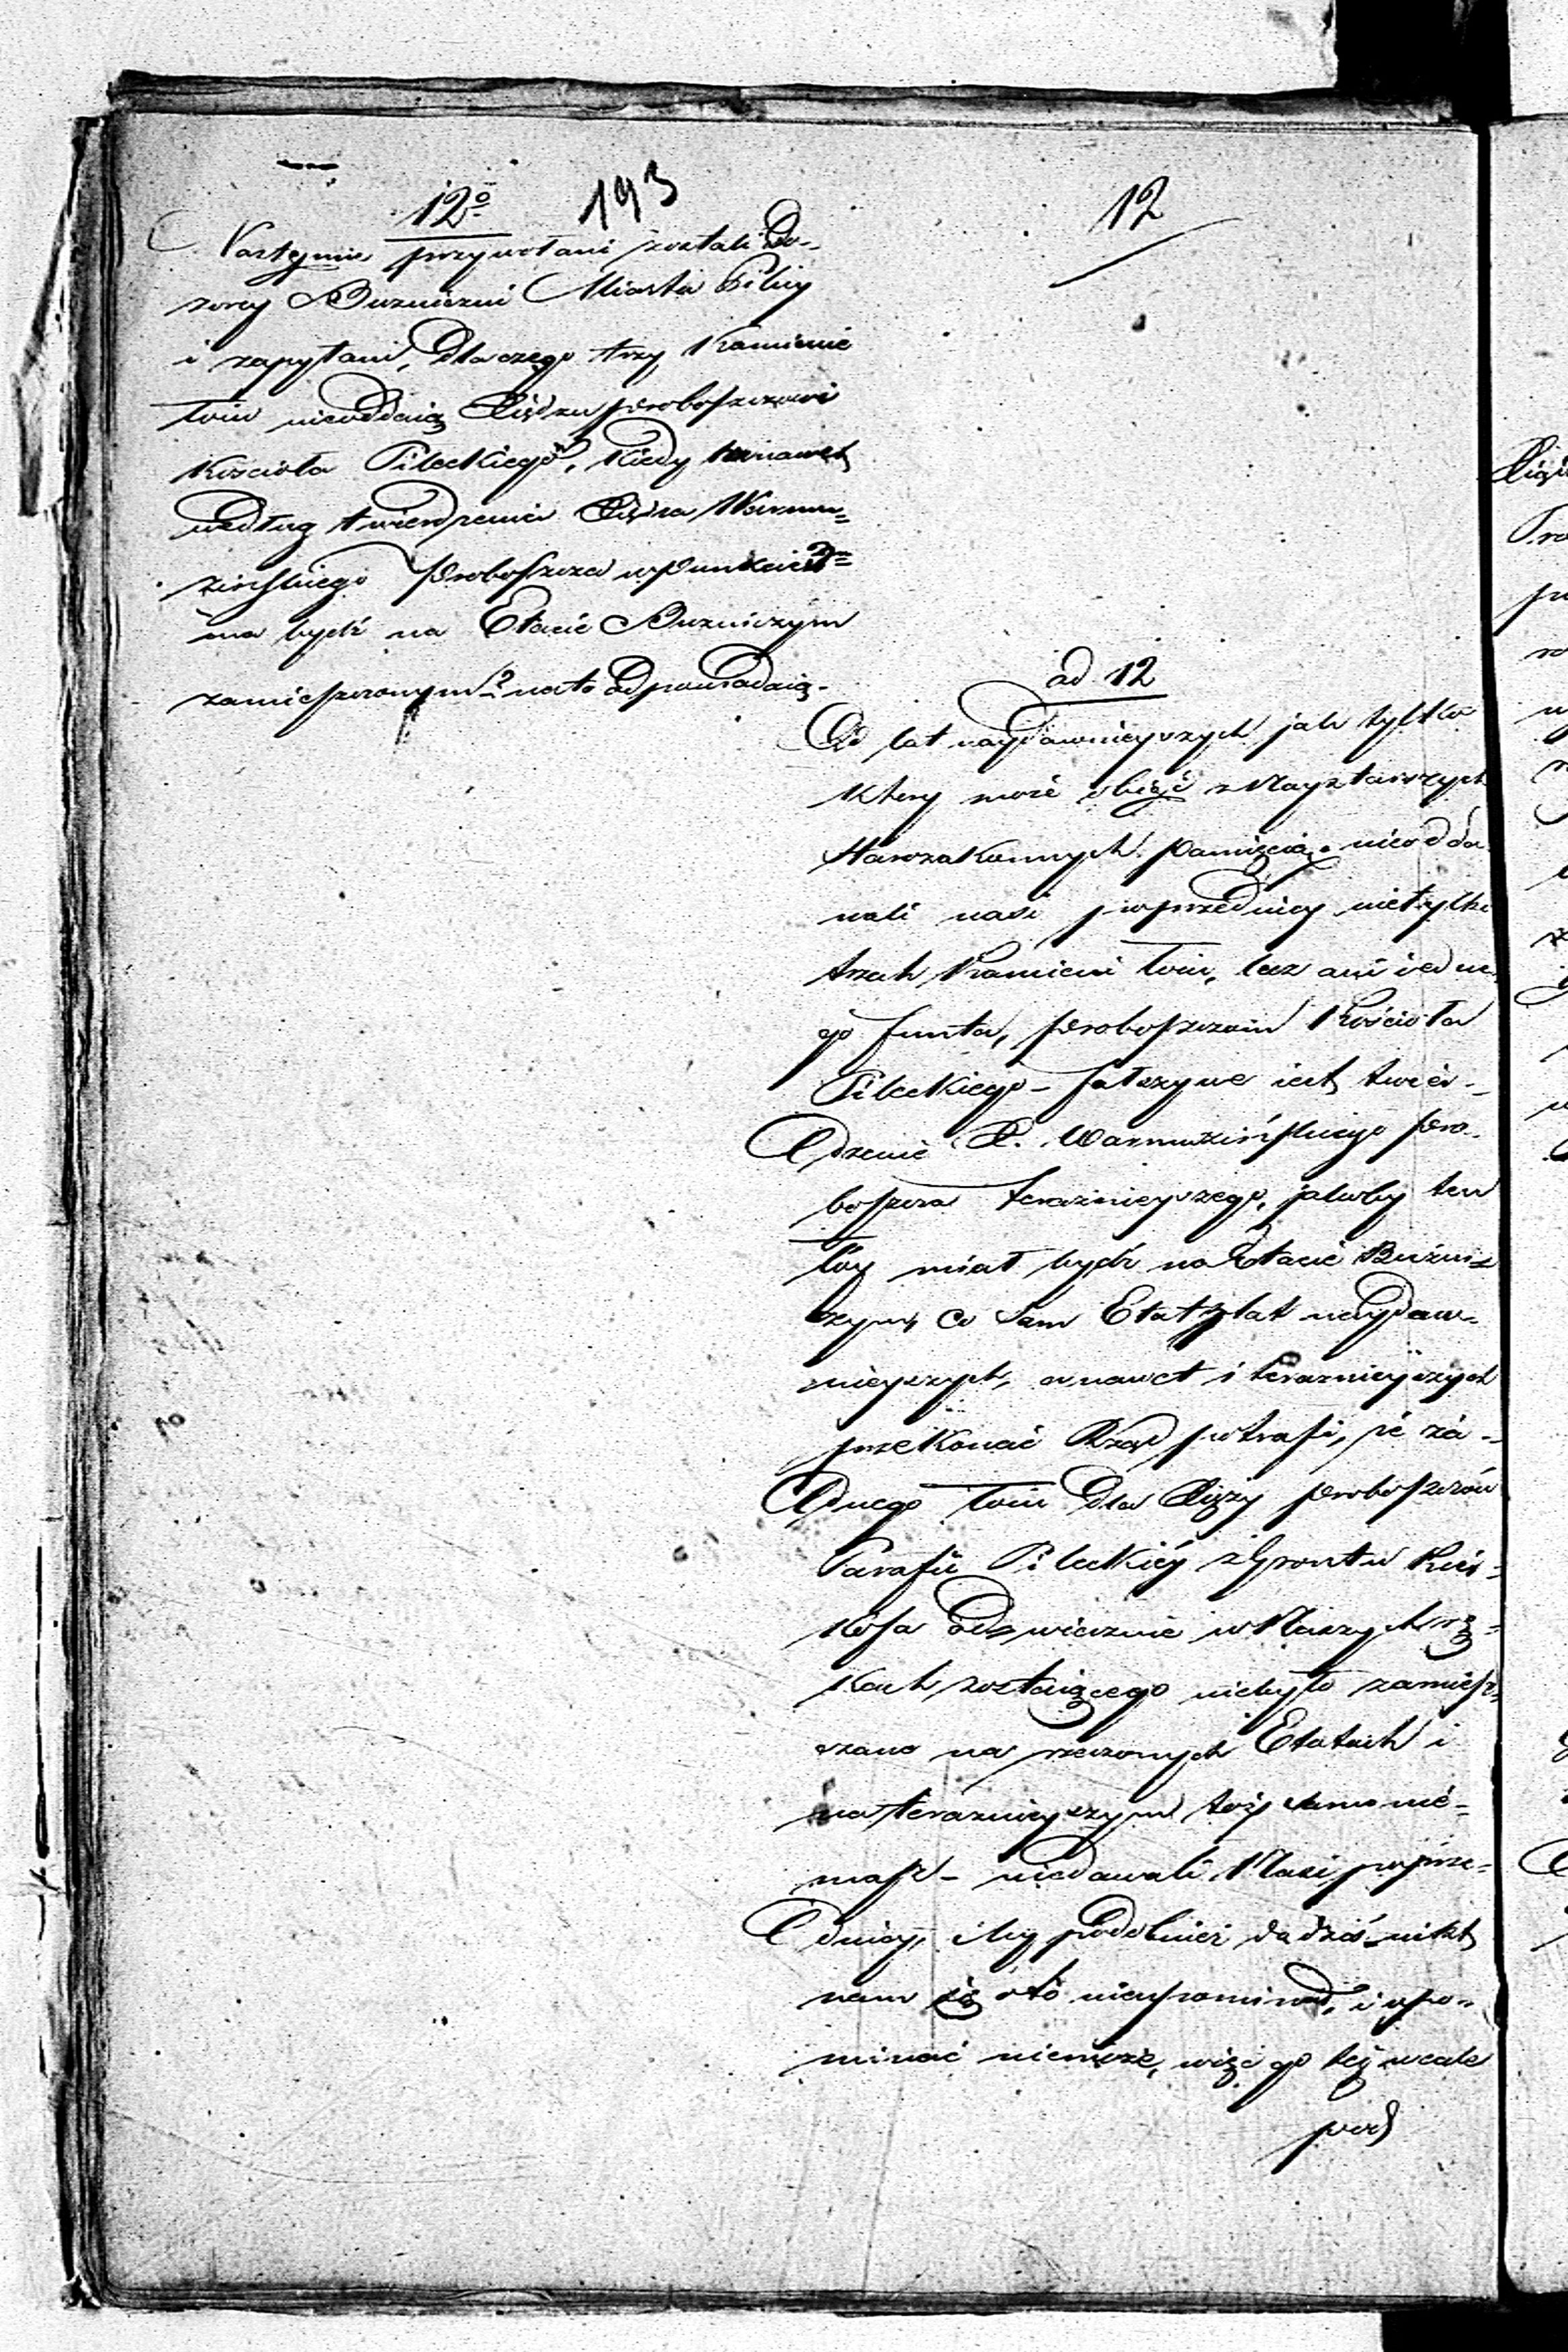 12º 193 12
Następnie przywołani zostali Do-
zorcy Bużniczni Miasta Pilicy
i zapytani, dla czego trzy Kamienie
łoiu nieoddaią Xiędzu Proboszczowi
Kościoła Pileckiego, kiedy nawet
według twierdzenia Xiędza Warmu=
zińskiego Proboszcza w Punkcie
ma bydź na Etacie Bużniczym
zamieszczonym? na to odpowiadaią.
ad 12
Od lat naydawnieyszych jak tylko
który może obiąć z Naysztarszych
Starozakonnych pamięcią nie odda
wali nasi poprzednicy nietylko
trzech Kamieni łoiu, lecz ani iedne
go funta, Proboszczom Kościoła
Pileckiego – fałszywe iest twier-
dzenie X. Warmuzińskiego Pro-
boszcza teraznieyszego, jakoby ten
łóy miał bydź na Etacie Bużni=
czym, co sam Etat z lat naydaw-
nieyszych, a nawet i teraznieyszych
przekonać Rząd potrafi, że ża-
dnego łoiu dla Xięży Proboszczów
Parafii Pileckiéy z Gruntu Kier-
kofa odwiecznie w Naszych rę-
kach zostaiącego niebyło zamiesz-
czano na rzeczonych Etatach i
na teraznieyszym toż samo nié-
masz – niedawali Nasi poprze-
dnicy, i My podobnież do dziś nikt
nam się o to nieupominał, i upo-
minać niemoże, więc go też wcale
pod